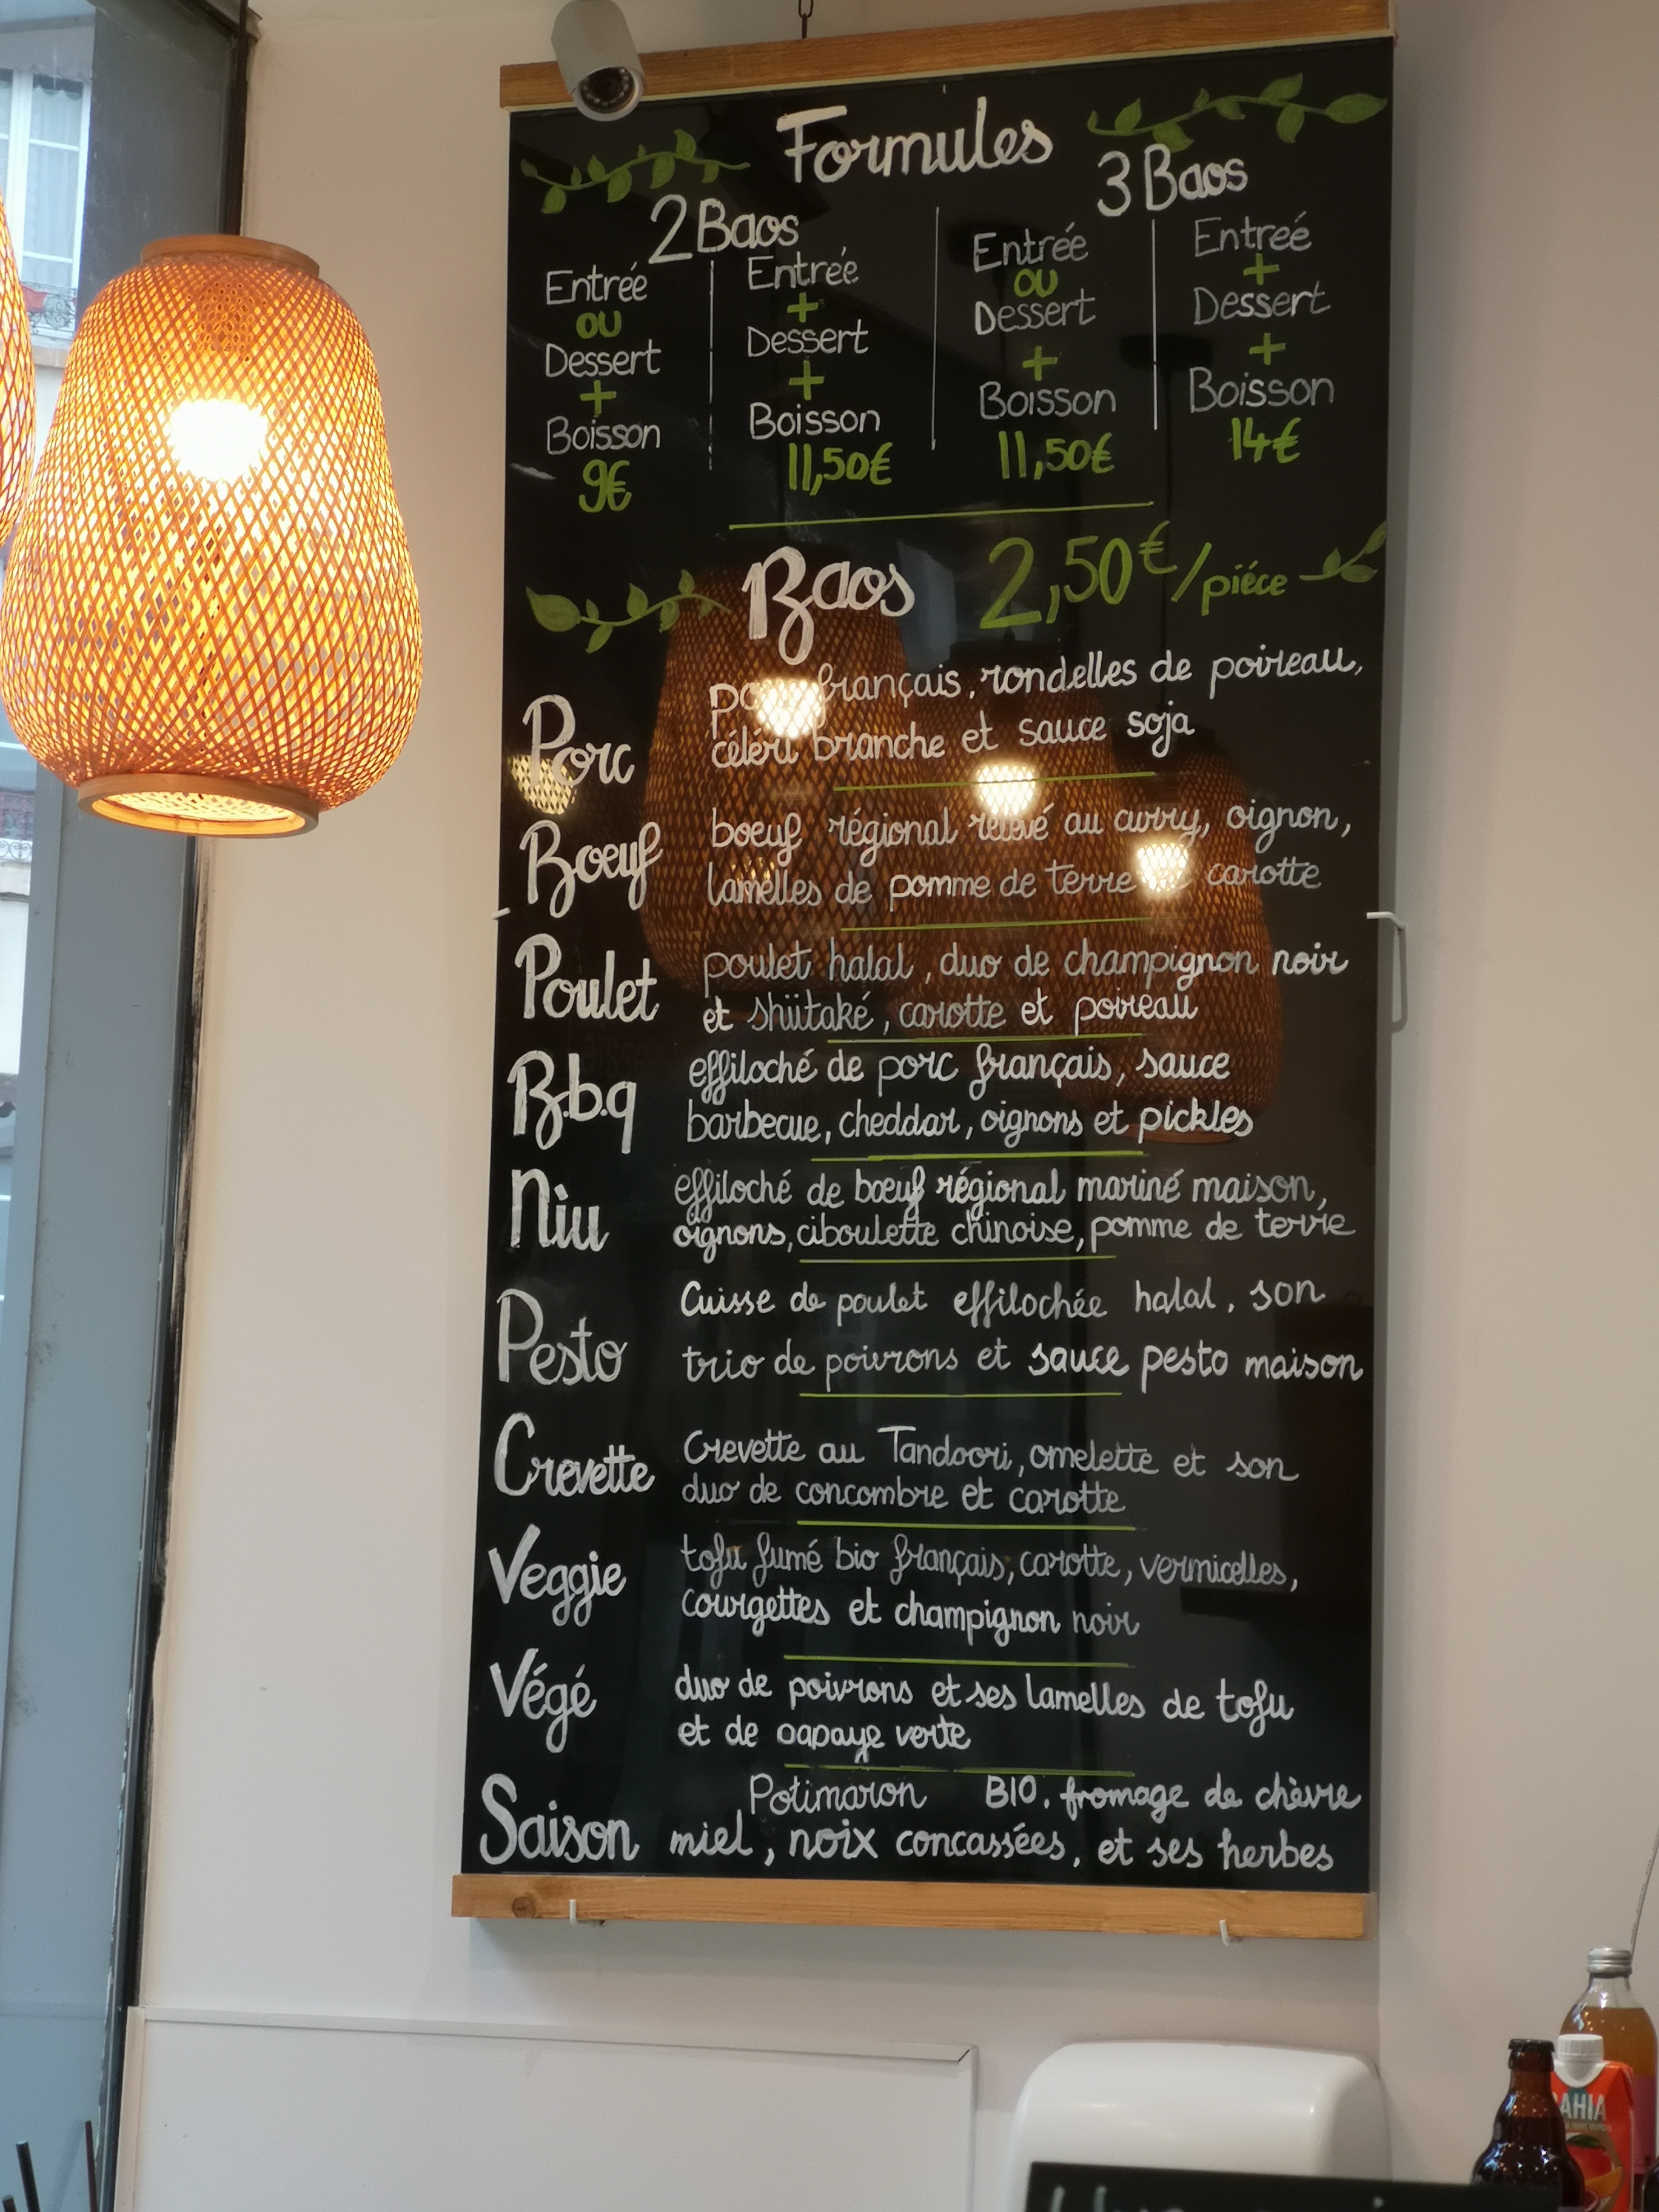 Formules
2 Baos
3 Baos
Entrée
ou
Dessert
+
Boisson
9€
Entrée
+
Dessert
+
Boisson
11,50€
Entrée
ou
Dessert
+
Boisson
11,50€
Entreé
+
Dessert
+
Boisson
14€
Baos 2,50€/piéce
Porc
porc français, rondelles de poireau,
céleri branche et sauce soja
Boeuf
boeuf régional relevé au curry, oignon,
lamelles de pomme de terre carotte
Poulet
poulet halal, duo de champignon noir
et shiitaké, carotte et poireau
B.b.q
effiloché de porc français, sauce
barbecue, cheddar, oignons et pickles
Niu
effiloché de bœuf régional mariné maison,
oignons, ciboulette chinoise, pomme de terre
Pesto
Cuisse de poulet effilochée halal, son
trio de poivrons et sauce pesto maison
Crevette
Crevette au Tandoori, omelette et son
duo de concombre et carotte
Veggie
tofu fumé bio français, carotte, vermicelles,
courgettes et champignon noir
Végé
duo de poivrons et ses lamelles de tofu
et de papaye verte
Saison
Potimaron BIO, fromage de chèvre
miel, noix concassées, et ses herbes
AHIA